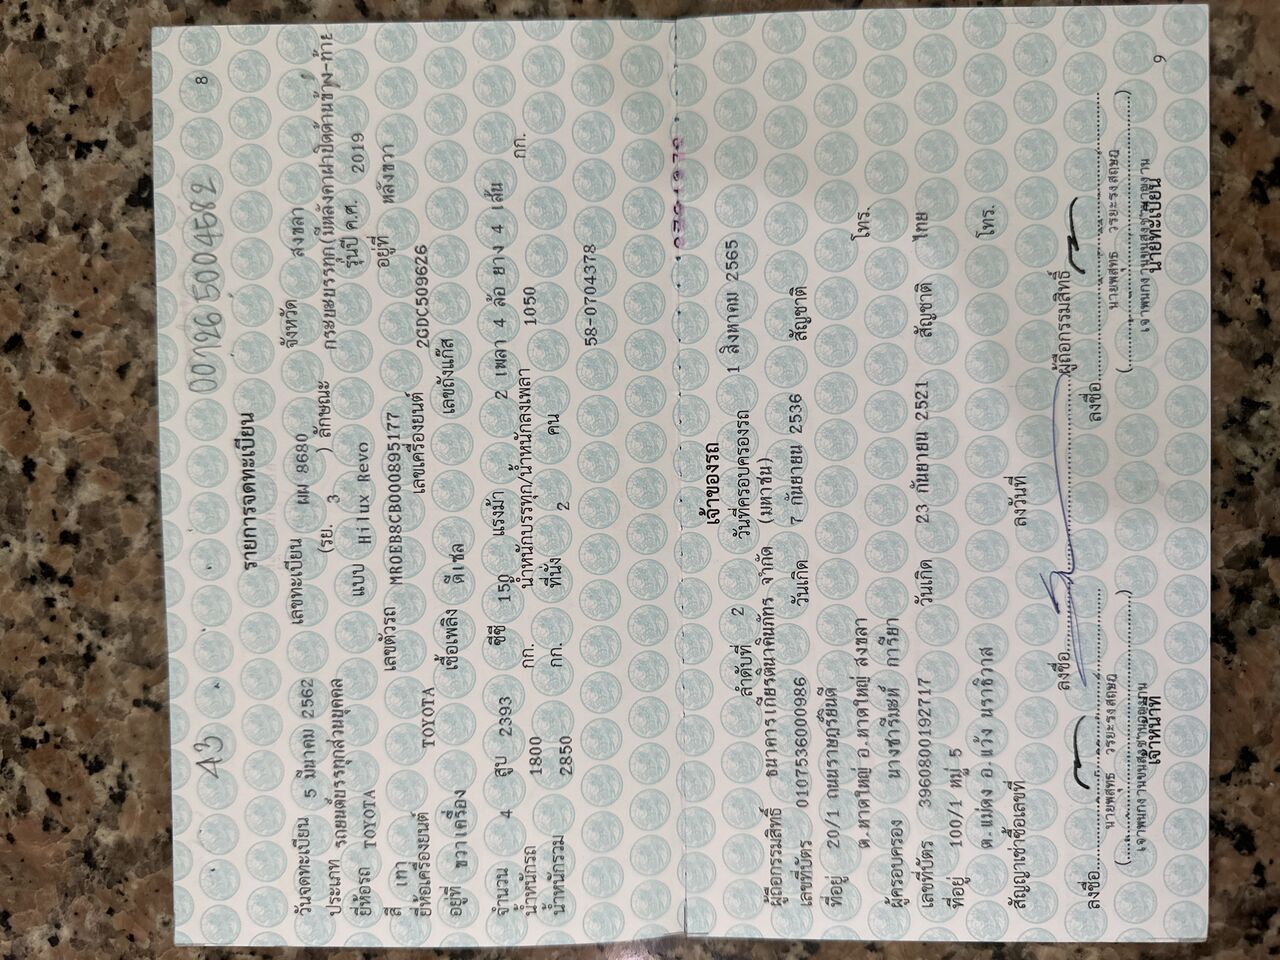 8
43
00126 65004582
รายการจดทะเบียน
วันจดทะเบียน 5 มีนาคม 2562 เลขทะเบียน ผผ 8680 จังหวัด สงขลา
ประเภท รถยนต์บรรทุกส่วนบุคคล (รย. 3 ) ลักษณะ กระบะบรรทุก(มีหลังคาฝาปิดด้านข้าง-ท้าย
ยี่ห้อรถ TOYOTA แบบ Hilux Revo รุ่นปี ค.ศ. 2019
สี เทา เลขตัวรถ MR0EB8CB000895177 อยู่ที่ หลังขวา
ยี่ห้อเครื่องยนต์ TOYOTA เลขเครื่องยนต์ 2GDC509626
อยู่ที่ ขวาเครื่อง เชื้อเพลิง ดีเซล เลขถังแก๊ส
จำนวน 4 สูบ 2393 ซีซี 150 แรงม้า 2 เพลา 4 ล้อ ยาง 4 เส้น
น้ำหนักรถ 1800 กก. น้ำหนักบรรทุก/น้ำหนักลงเพลา 1050 กก.
น้ำหนักรวม 2850 กก. ที่นั่ง 2 คน
58-0704378
เจ้าของรถ
ลำดับที่ 2 วันที่ครอบครองรถ 1 สิงหาคม 2565
ผู้ถือกรรมสิทธิ์ ธนาคารเกียรตินาคินภัทร จำกัด (มหาชน)
เลขที่บัตร 0107536000986 วันเกิด 7 กันยายน 2536 สัญชาติ
ที่อยู่ 20/1 ถนนราษฎร์ยินดี
ต.หาดใหญ่ อ.หาดใหญ่ สงขลา โทร.
ผู้ครอบครอง นางซารีนะห์ การียา
เลขที่บัตร 3960800192717 วันเกิด 23 กันยายน 2521 สัญชาติ ไทย
ที่อยู่ 100/1 หมู่ 5
ต.แม่ดง อ.แว้ง นราธิวาส โทร.
สัญญาเช่าซื้อเลขที่ ลงวันที่
ลงชื่อ ผู้ถือกรรมสิทธิ์
ลงชื่อ ลงชื่อ
นายพสุทธ วรยะรงสฤษฎ นายพสุทธ วรยะรงสฤษฎ
เจ้าพนักงานขนส่งชำนาญงาน เจ้าพนักงานขนส่งชำนาญงาน
เจ้าหน้าที่ นายทะเบียน
9